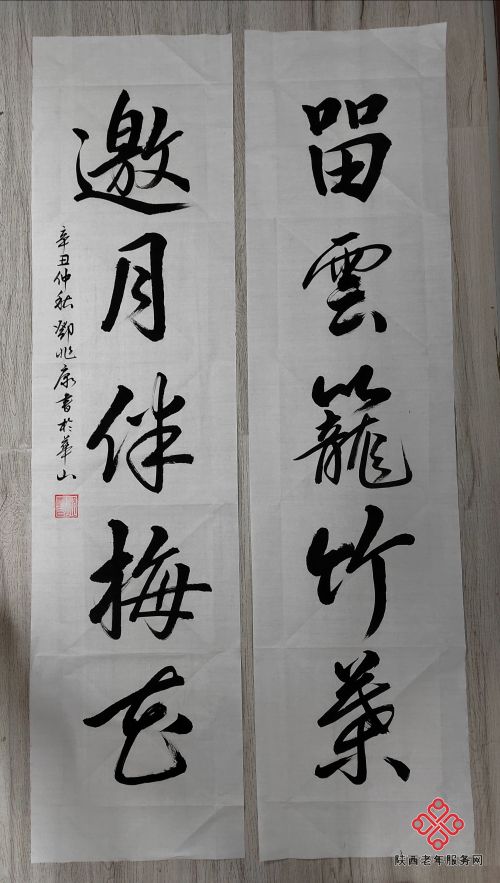 留雲籠竹葉
邀月伴梅花
辛丑仲秋鄧兆康書於華山
陕西老年服务网